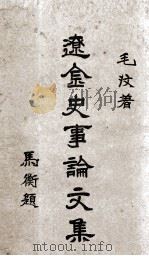 毛汶著
遼金史事論文集
馬衡題
mtoou.info